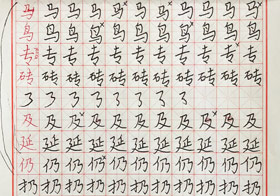 马马马马马马马马马马马
鸟鸟鸟鸟鸟鸟鸟鸟鸟鸟鸟
专专专专专专专专专专专
砖砖砖砖砖砖砖砖砖砖砖
及及及及及及及及及及及
延延延延延延延延延延延
仍仍仍仍仍仍仍仍仍仍仍
扔扔扔扔扔扔扔扔扔扔扔